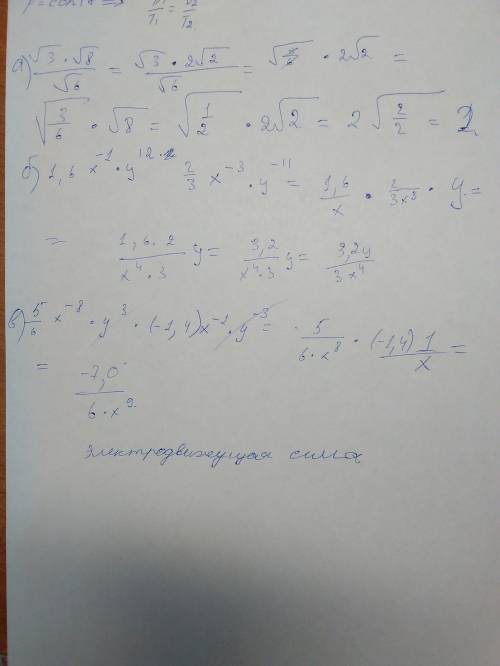 p = const => V₁/T₁ = V₂/T₂
а) √3 · √8 / √6 = √3 · 2√2 / √6 = · 2√2 =
√(3/6) · √8 = √(1/2) · 2√2 = 2√(2/2) = 2
б) 1,6 x⁻¹ · y¹² · 2/3 x⁻³ · y⁻¹¹ = 1,6/x · 2/3x³ · y =
= 1,6 · 2 / x⁴ · 3 y = 3,2 / x⁴ · 3 y = 3,2y / 3 · x⁴
в) 5/6 x⁻⁸ · y³ · (-1,4) x⁻¹ · y⁻³ = 5 / 6 · x⁸ · (-1,4) 1 / x =
= -7,0 / 6 · x⁹
Электродвижущая сила